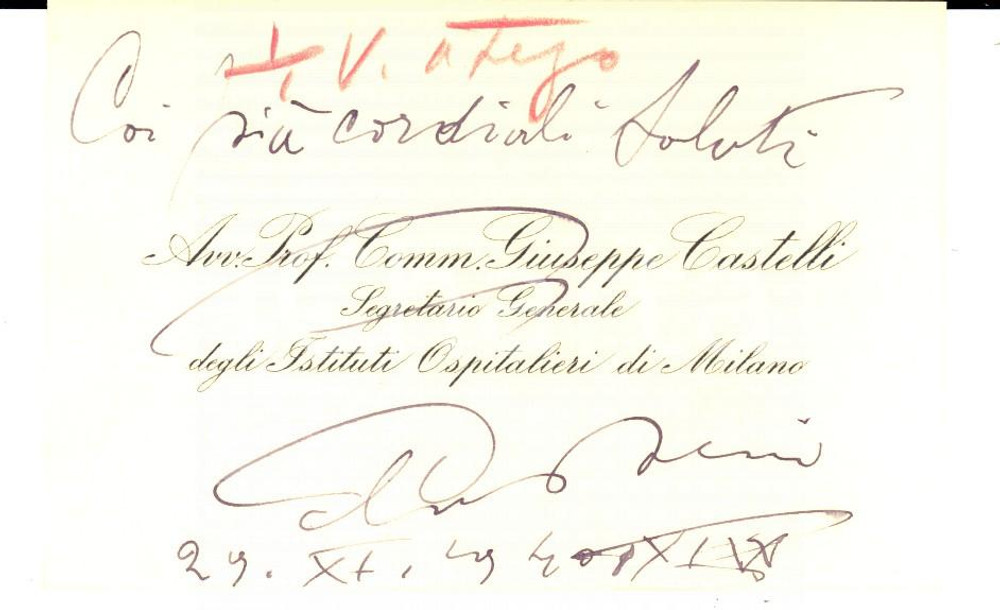 Coi più cordiali saluti
Avv. Prof. Comm. Giuseppe Castelli
Segretario Generale
degli Istituti Ospitalieri di Milano
29. XI. 1940 XIX